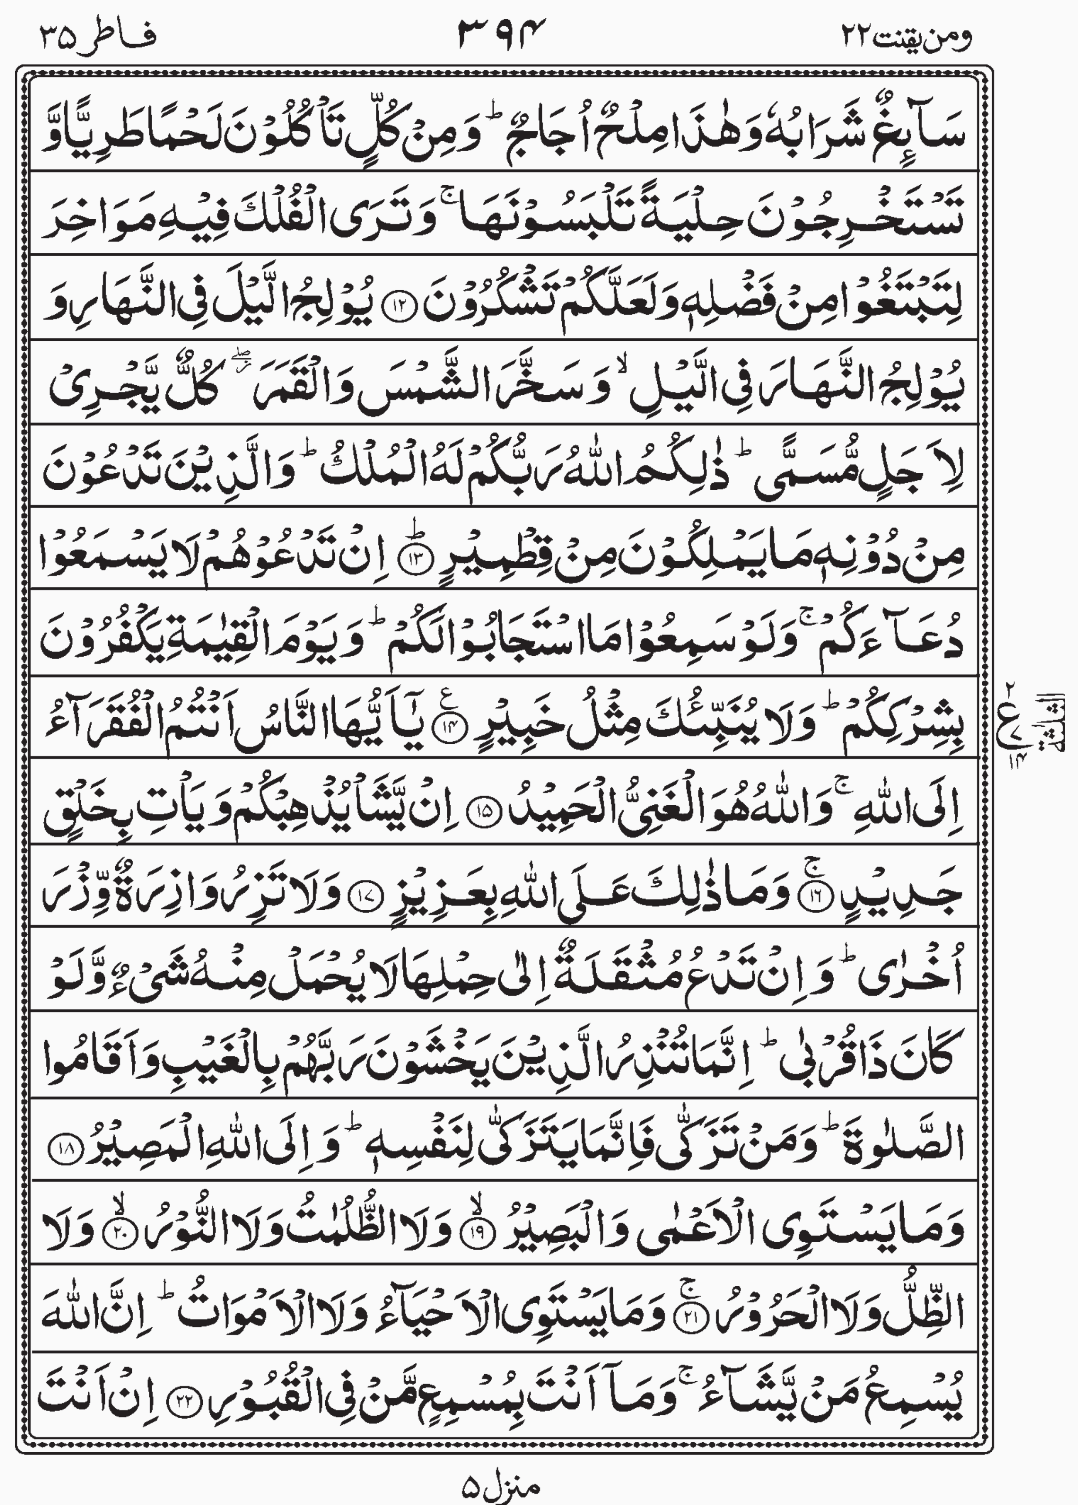 ومن یقنت ۲۲ ۳۹۴ فاطر ۳۵
سَآىِٕغٌ شَرَابُهٗ وَ هٰذَا مِلْحٌ اُجَاجٌ ؕ وَ مِنْ كُلٍّ تَاْكُلُوْنَ لَحْمًا طَرِیًّا وَّ
تَسْتَخْرِجُوْنَ حِلْیَةً تَلْبَسُوْنَهَا ۚ وَ تَرَی الْفُلْكَ فِیْهِ مَوَاخِرَ
لِتَبْتَغُوْا مِنْ فَضْلِهٖ وَ لَعَلَّكُمْ تَشْكُرُوْنَ ۝۱۲ یُوْلِجُ الَّیْلَ فِی النَّهَارِ وَ
یُوْلِجُ النَّهَارَ فِی الَّیْلِ ۙ وَ سَخَّرَ الشَّمْسَ وَ الْقَمَرَ ۖؗ كُلٌّ یَّجْرِیْ
لِاَجَلٍ مُّسَمًّی ؕ ذٰلِكُمُ اللّٰهُ رَبُّكُمْ لَهُ الْمُلْكُ ؕ وَ الَّذِیْنَ تَدْعُوْنَ
مِنْ دُوْنِهٖ مَا یَمْلِكُوْنَ مِنْ قِطْمِیْرٍ ؕ۝۱۳ اِنْ تَدْعُوْهُمْ لَا یَسْمَعُوْا
دُعَآءَكُمْ ۚ وَ لَوْ سَمِعُوْا مَا اسْتَجَابُوْا لَكُمْ ؕ وَ یَوْمَ الْقِیٰمَةِ یَكْفُرُوْنَ
بِشِرْكِكُمْ ؕ وَ لَا یُنَبِّئُكَ مِثْلُ خَبِیْرٍ ۝۱۴ ع یٰۤاَیُّهَا النَّاسُ اَنْتُمُ الْفُقَرَآءُ
۲ ع ۷ ۱۴ الثلثة
اِلَی اللّٰهِ ۚ وَ اللّٰهُ هُوَ الْغَنِیُّ الْحَمِیْدُ ۝۱۵ اِنْ یَّشَاْ یُذْهِبْكُمْ وَ یَاْتِ بِخَلْقٍ
جَدِیْدٍ ۚ۝۱۶ وَ مَا ذٰلِكَ عَلَی اللّٰهِ بِعَزِیْزٍ ۝۱۷ وَ لَا تَزِرُ وَازِرَةٌ وِّزْرَ
اُخْرٰی ؕ وَ اِنْ تَدْعُ مُثْقَلَةٌ اِلٰی حِمْلِهَا لَا یُحْمَلْ مِنْهُ شَیْءٌ وَّ لَوْ
كَانَ ذَا قُرْبٰی ؕ اِنَّمَا تُنْذِرُ الَّذِیْنَ یَخْشَوْنَ رَبَّهُمْ بِالْغَیْبِ وَ اَقَامُوا
الصَّلٰوةَ ؕ وَ مَنْ تَزَكّٰی فَاِنَّمَا یَتَزَكّٰی لِنَفْسِهٖ ؕ وَ اِلَی اللّٰهِ الْمَصِیْرُ ۝۱۸
وَ مَا یَسْتَوِی الْاَعْمٰی وَ الْبَصِیْرُ ۙ۝۱۹ وَ لَا الظُّلُمٰتُ وَ لَا النُّوْرُ ۙ۝۲۰ وَ لَا
الظِّلُّ وَ لَا الْحَرُوْرُ ۚ۝۲۱ وَ مَا یَسْتَوِی الْاَحْیَآءُ وَ لَا الْاَمْوَاتُ ؕ اِنَّ اللّٰهَ
یُسْمِعُ مَنْ یَّشَآءُ ۚ وَ مَاۤ اَنْتَ بِمُسْمِعٍ مَّنْ فِی الْقُبُوْرِ ۝۲۲ اِنْ اَنْتَ
منزل ۵